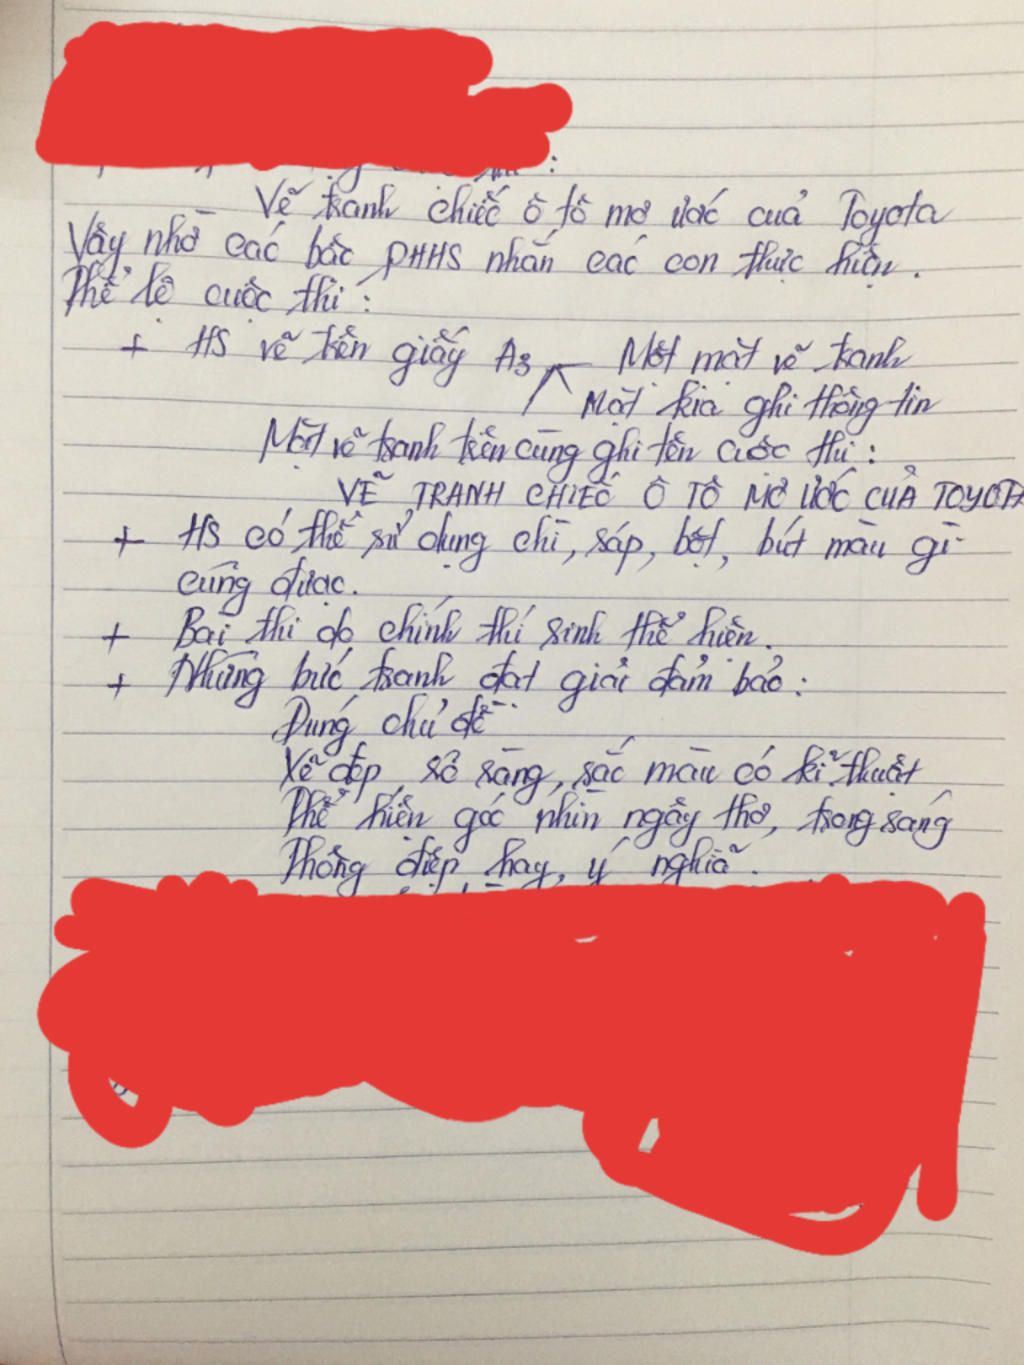 Vẽ tranh chiếc ô tô mơ ước của Toyota
Vậy nhờ các bác PHHS nhắn các con thực hiện.
Thể lệ cuộc thi:
+ HS vẽ trên giấy A3 Một mặt vẽ tranh
Mặt kia ghi thông tin
Mặt vẽ tranh trên cùng ghi tên cuộc thi:
VẼ TRANH CHIẾC Ô TÔ MƠ ƯỚC CỦA TOYOTA
+ HS có thể sử dụng chì, sáp, bột, bút màu gì
cũng được.
+ Bài thi do chính thí sinh thể hiện.
+ Những bức tranh đạt giải đảm bảo:
Đúng chủ đề
Vẽ đẹp, sáng, sắc màu có kĩ thuật
Thể hiện góc nhìn ngây thơ, trong sáng
Thông điệp hay, ý nghĩa.